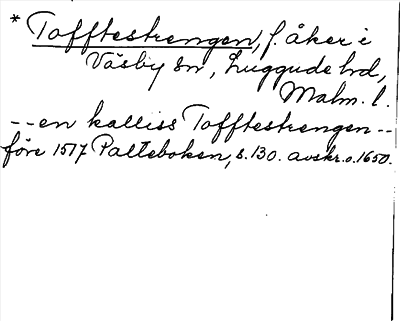 * Tofftestrengen, f. åker i
Väsby sn, Luggude hd,
Malm. l.
-- en kalliss Tofftestrengen --
före 1517 Palteboken, s. 130. avskr. o. 1650.